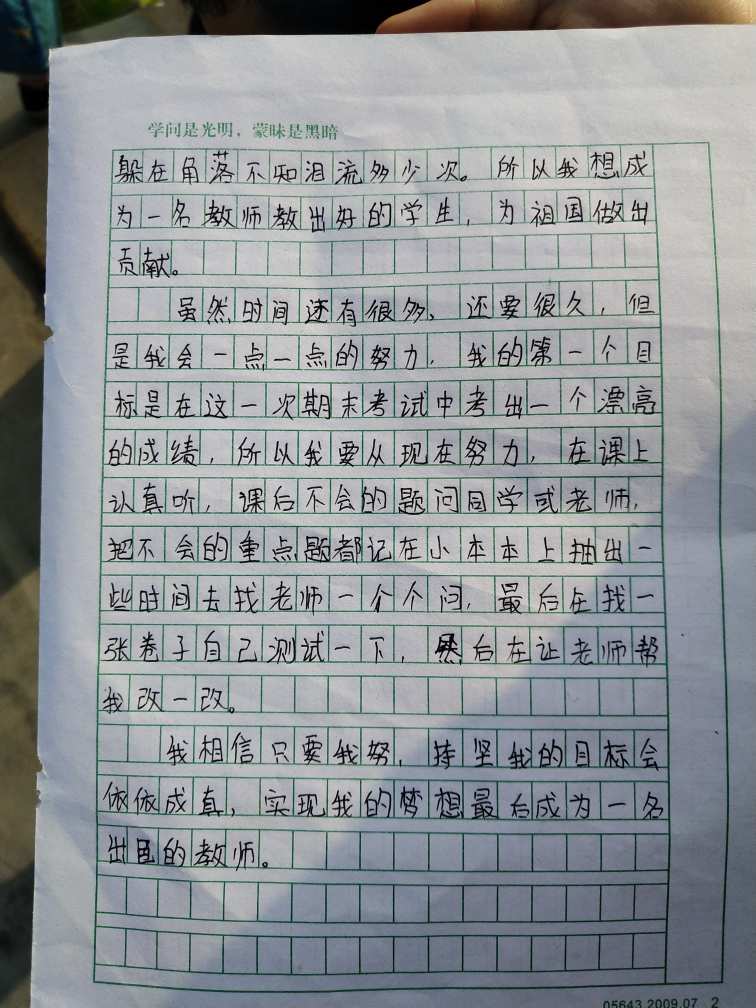 学问是光明，蒙昧是黑暗
躲在角落不知泪流多少次。所以我想成
为一名教师教出好的学生，为祖国做出
贡献。
虽然时间还有很多、还要很久，但
是我会一点一点的努力，我的第一个目
标是在这一次期末考试中考出一个漂亮
的成绩，所以我要从现在努力，在课上
认真听，课后不会的题问同学或老师，
把不会的重点题都记在小本本上抽出一
些时间去找老师一个个问，最后在找一
张卷子自己测试一下，然后在让老师帮
我改一改。
我相信只要我努，持坚我的目标会
依依成真，实现我的梦想最后成为一名
出色的教师。
05643.2009.07 2